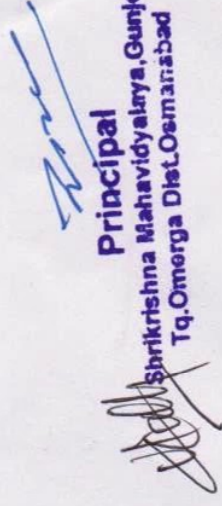 Principal
Shrikrishna Mahavidyalaya,Gunj
Tq.Omerga Dist.Osmanabad